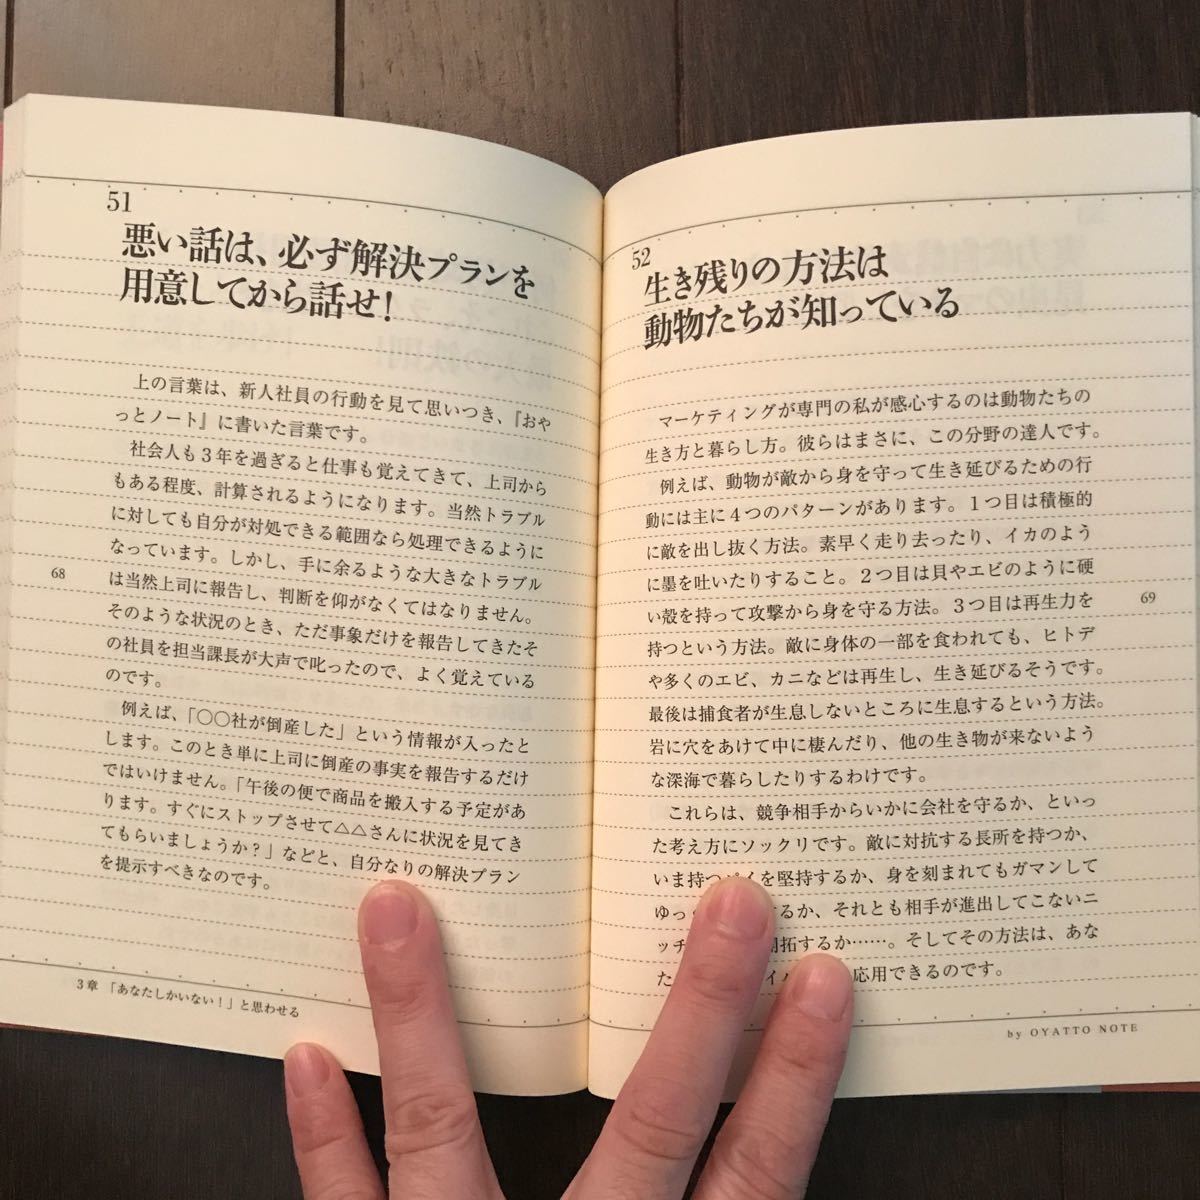 51
悪い話は、必ず解決プランを
用意してから話せ!
上の言葉は、新人社員の行動を見て思いつき、『おや
っとノート』に書いた言葉です。
社会人も3年を過ぎると仕事も覚えてきて、上司から
もある程度、計算されるようになります。当然トラブル
に対しても自分が対処できる範囲なら処理できるように
なっています。しかし、手に余るような大きなトラブル
は当然上司に報告し、判断を仰がなくてはなりません。
そのような状況のとき、ただ事象だけを報告してきたそ
の社員を担当課長が大声で叱ったので、よく覚えている
のです。
例えば、「〇〇社が倒産した」という情報が入ったと
します。このとき単に上司に倒産の事実を報告するだけ
ではいけません。「午後の便で商品を搬入する予定があ
ります。すぐにストップさせて△△さんに状況を見てき
てもらいましょうか?」などと、自分なりの解決プラン
を提示すべきなのです。
68
3章 「あなたしかいない!」と思わせる
52
生き残りの方法は
動物たちが知っている
マーケティングが専門の私が感心するのは動物たちの
生き方と暮らし方。彼らはまさに、この分野の達人です。
例えば、動物が敵から身を守って生き延びるための行
動には主に4つのパターンがあります。1つ目は積極的
に敵を出し抜く方法。素早く走り去ったり、イカのよう
に墨を吐いたりすること。2つ目は貝やエビのように硬
い殻を持って攻撃から身を守る方法。3つ目は再生力を
持つという方法。敵に身体の一部を食われても、ヒトデ
や多くのエビ、カニなどは再生し、生き延びるそうです。
最後は捕食者が生息しないところに生息するという方法。
岩に穴をあけて中に棲んだり、他の生き物が来ないよう
な深海で暮らしたりするわけです。
これらは、競争相手からいかに会社を守るか、といっ
た考え方にソックリです。敵に対抗する長所を持つか、
いま持つパイを堅持するか、身を刻まれてもガマンして
ゆっ するか、それとも相手が進出してこないニ
ッチ 開拓するか……。そしてその方法は、あな
た イバ 応用できるのです。
69
by OYATTO NOTE